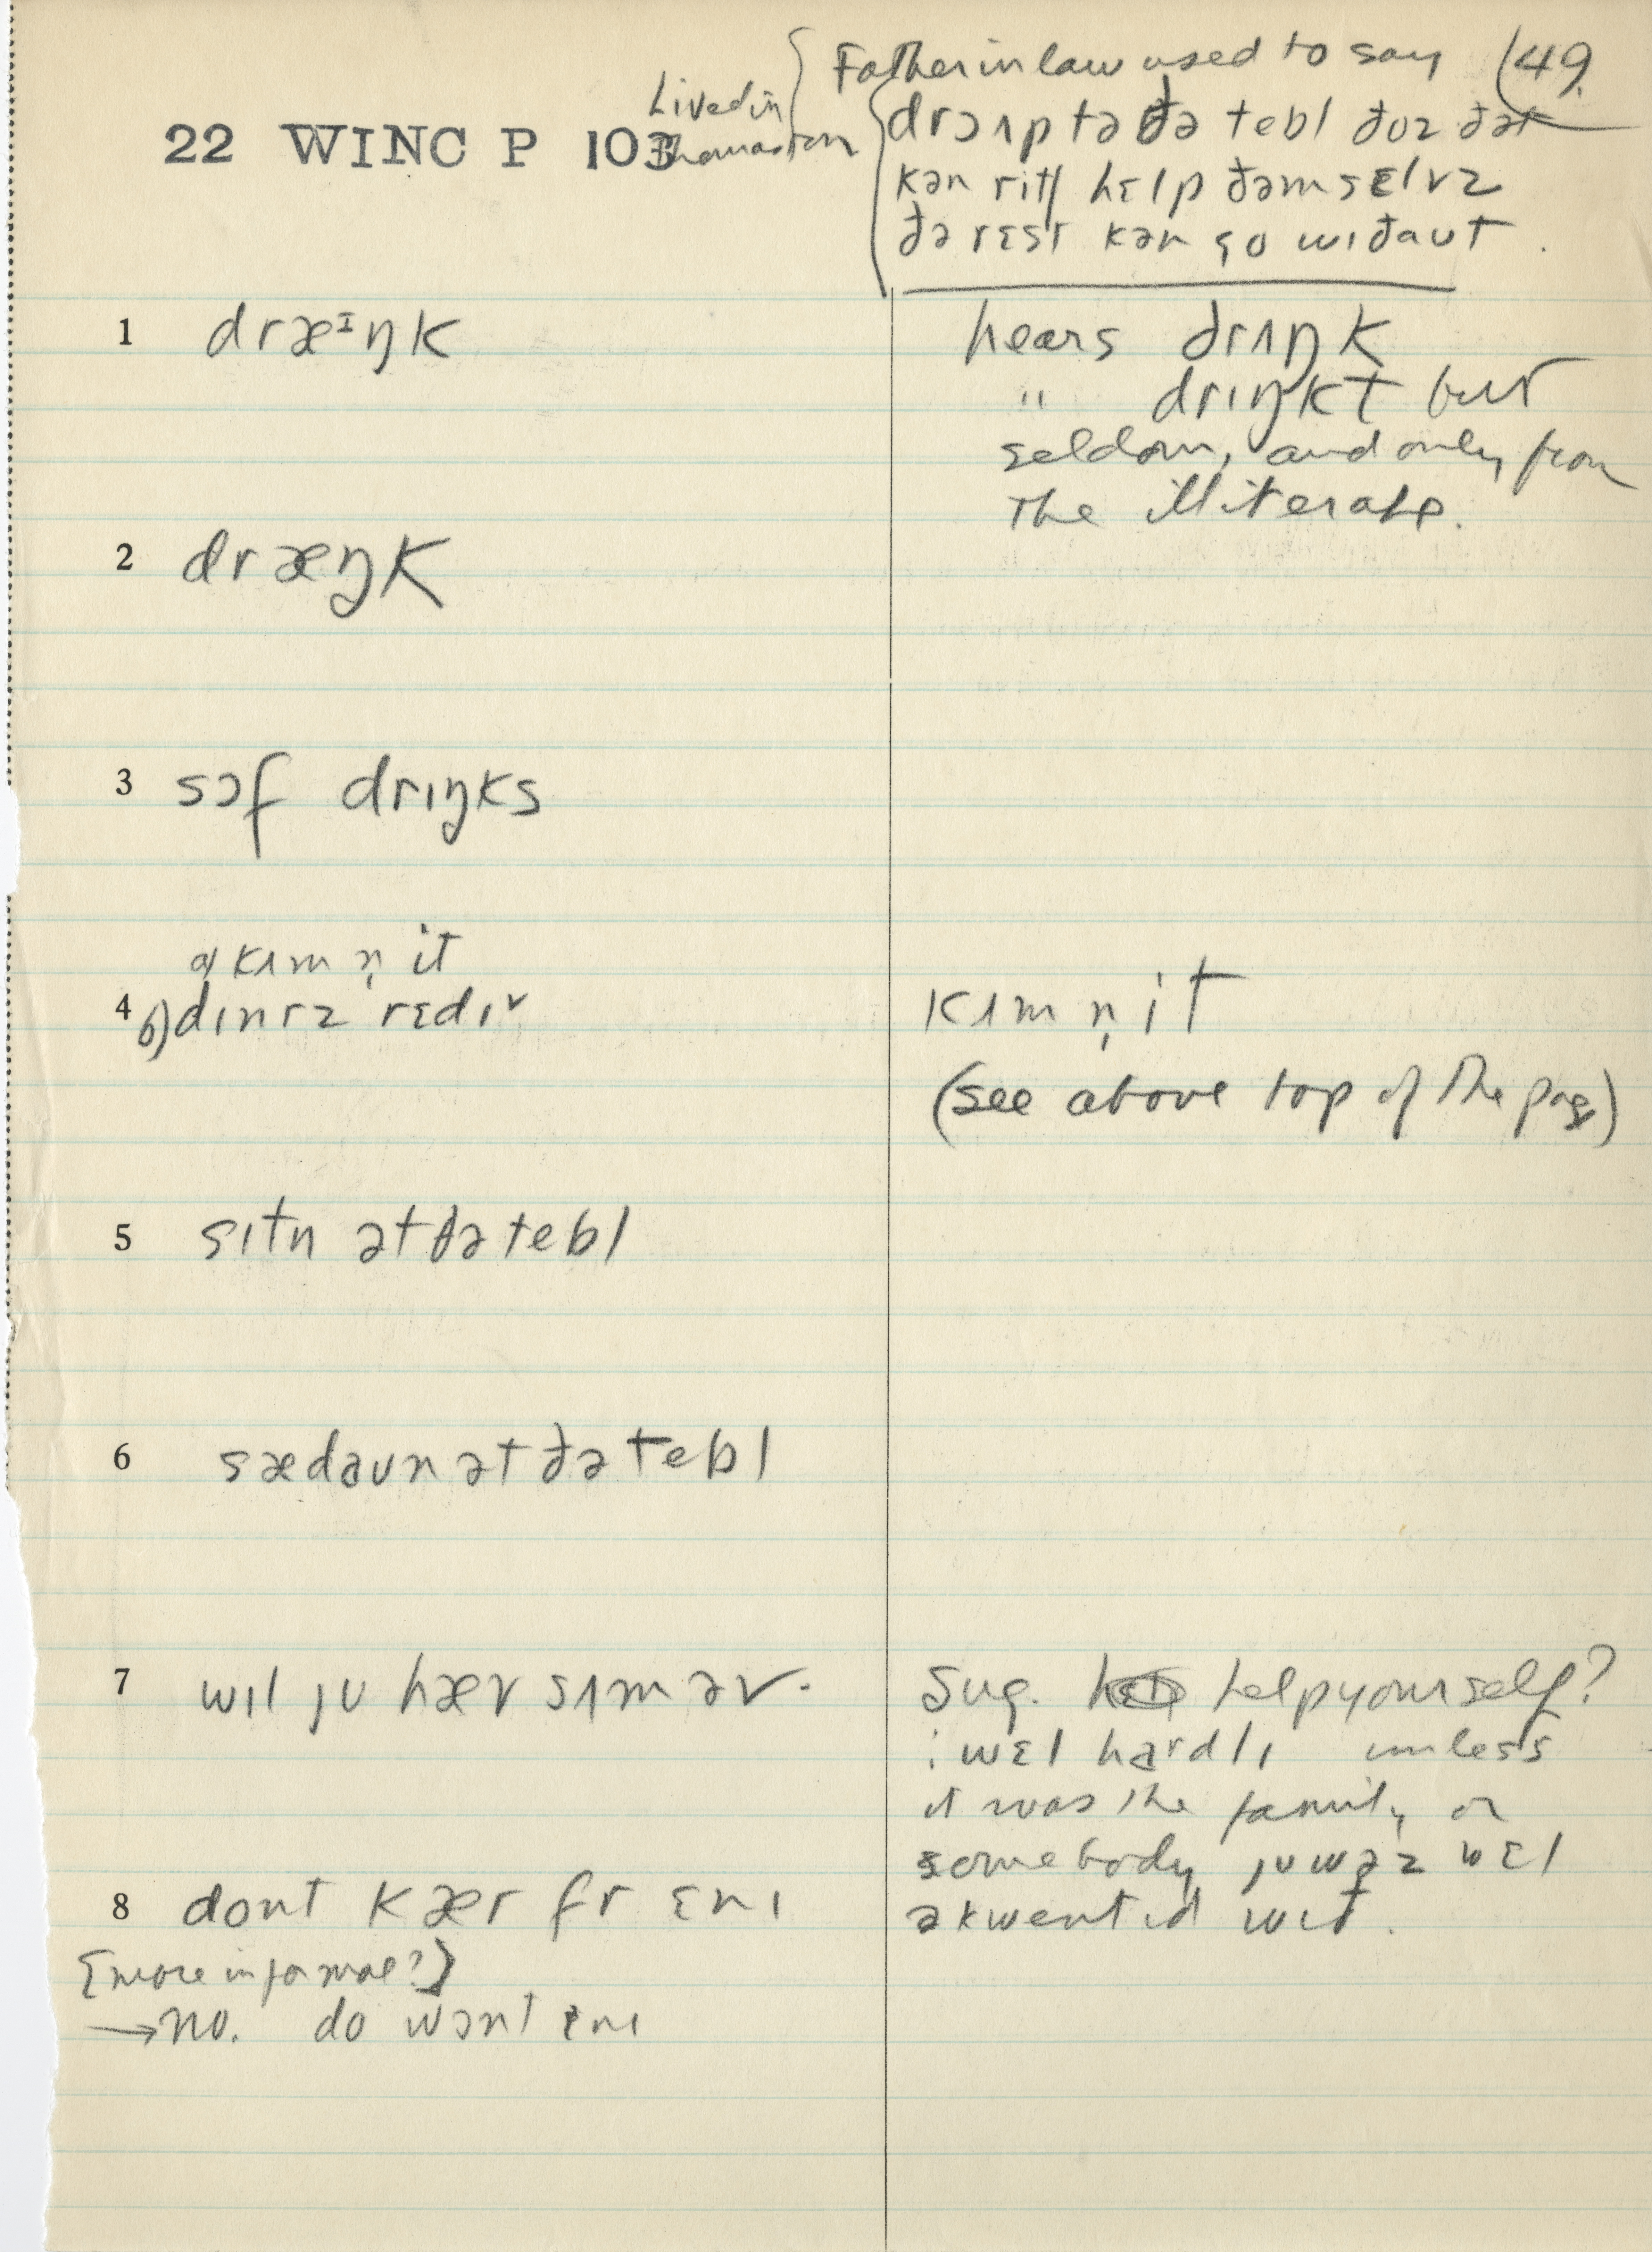 Father in law used to say (49
Lived in
22 WINC P 103 Thomaston
drɔ ʌp tə ðə tebl ðoz ðət
kən ritʃ hɛlp ðəmsɛlvz
ðə rɛst kən go wiðaut.
1 dræᶦŋk hears drʌŋk
" drɪŋkt but
seldom, and only from
the illiterate.
2 dræŋk
3 sɔf drɪŋks
a) kʌm n̩ it
4 b) dɪnrz rɛdɪ˅ kʌm n̩ it
(see above top of the page)
5 sɪtn ət ðə tebl
6 sædaun ət ðə tebl
7 wɪl ju hæv sʌm əv. Sug. help yourself?
: wɛl hardlɪ unless
it was the family or
somebody ju wəz wɛl
8 dont kær fr ɛnɪ əkwentɪd wɪð.
[more informal?]
→ no. do wɔnt ɛnɪ